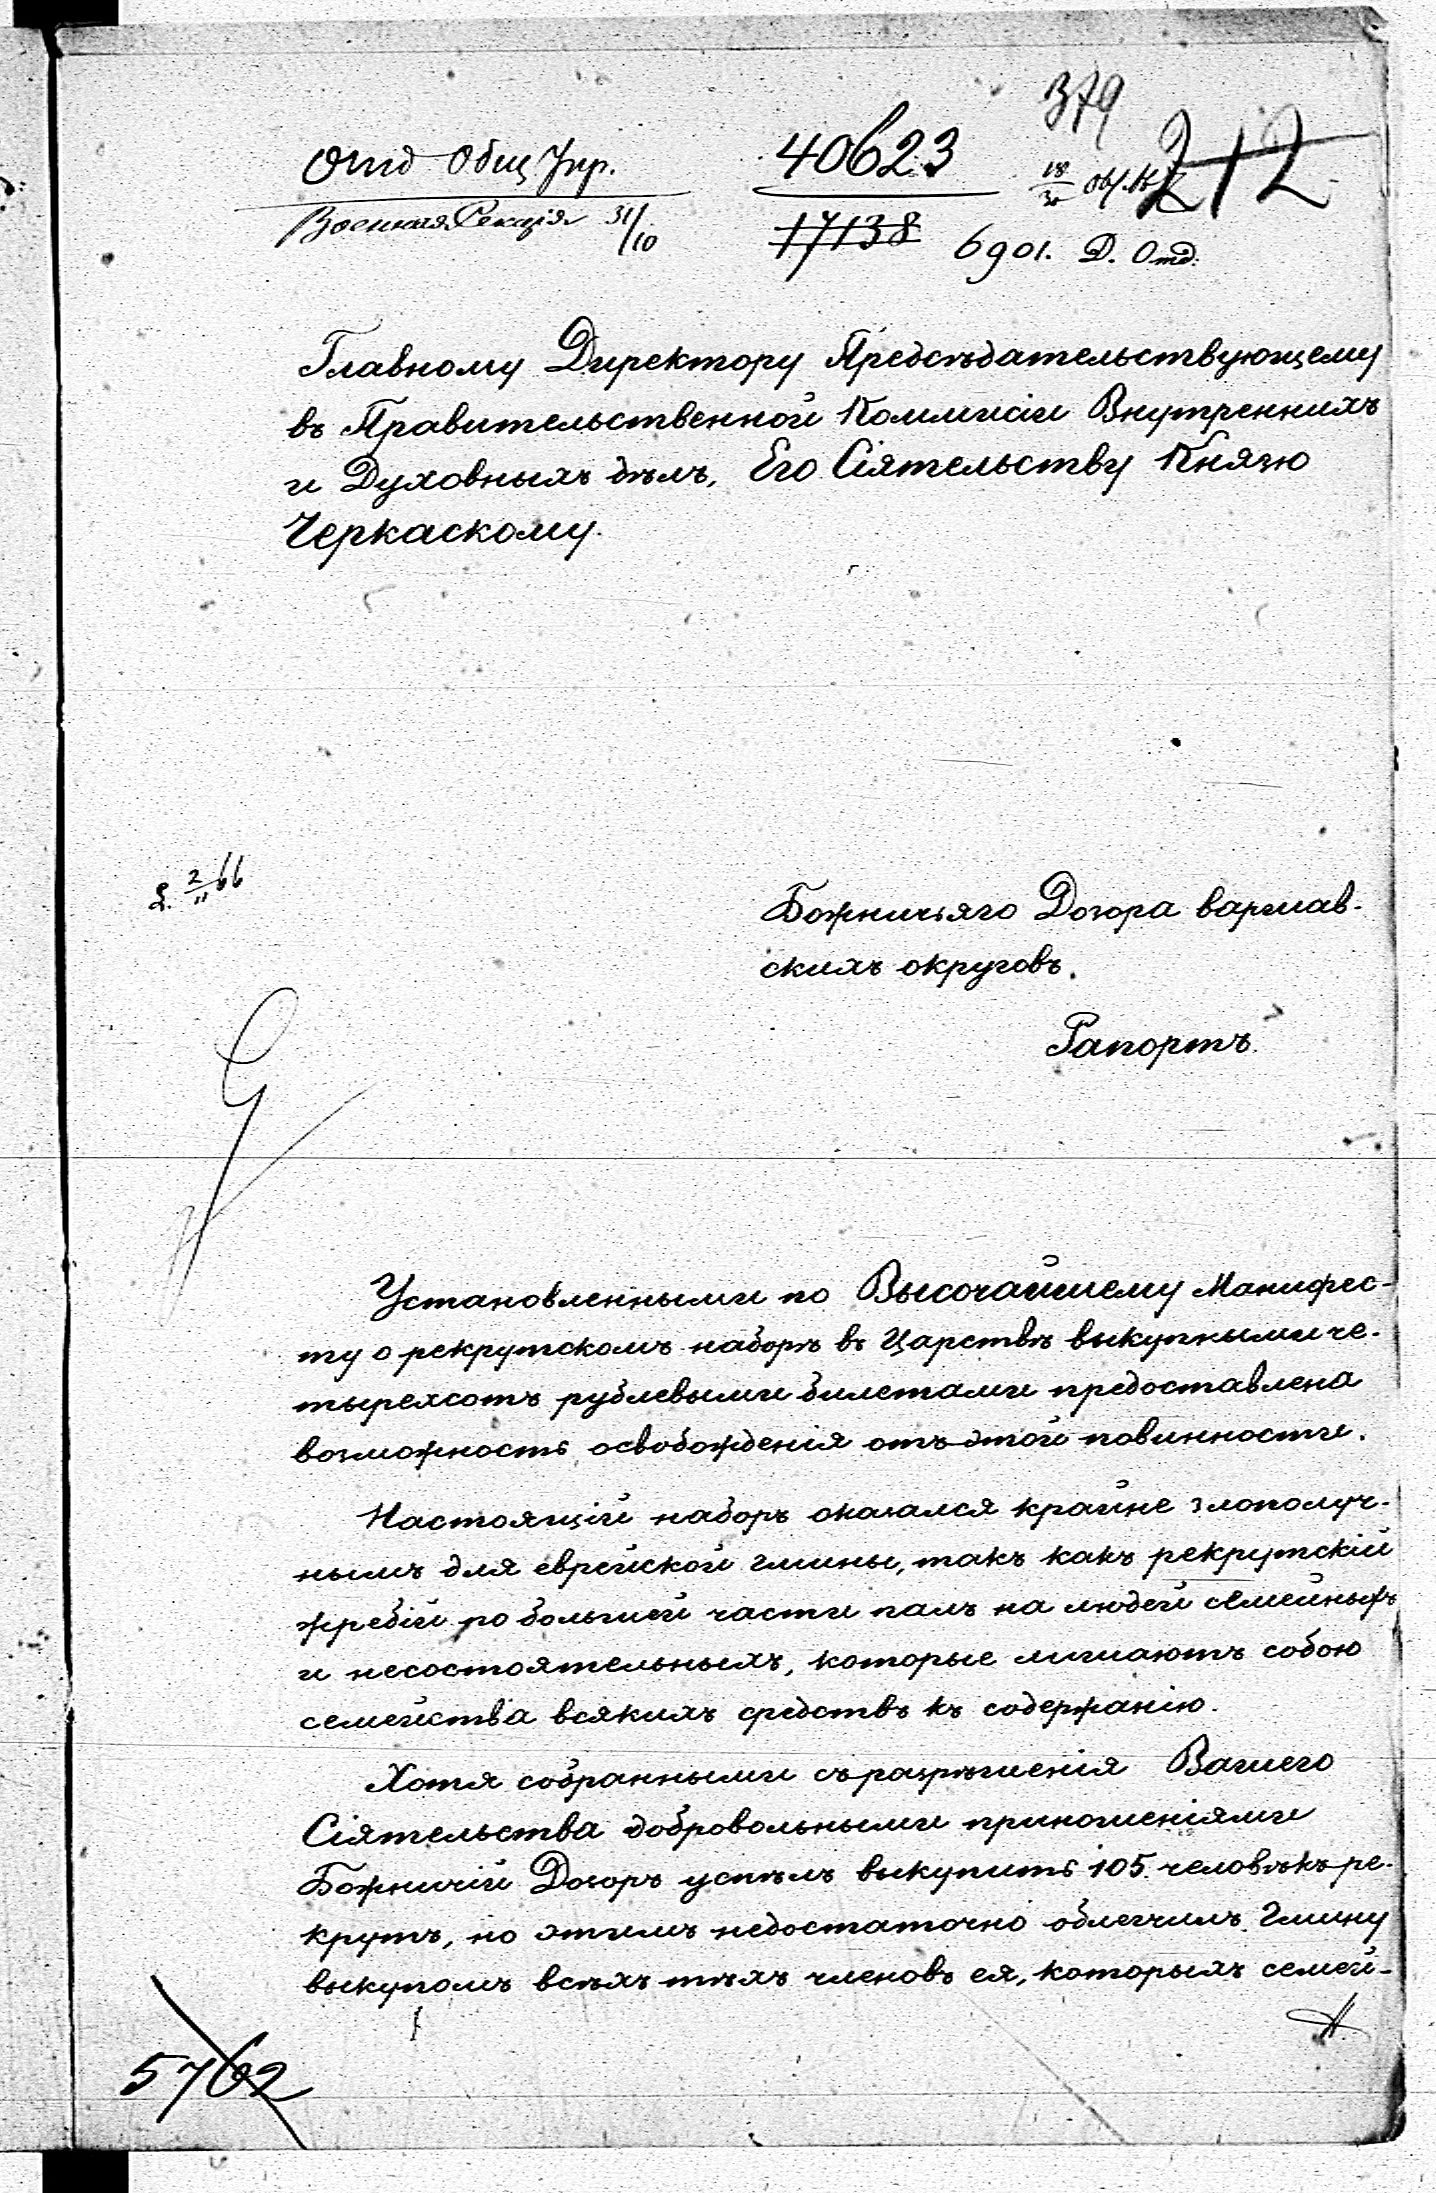 379
Отд Общ Упр.
40623
212
Военная Секція 31/10
18/30 Окт.
17138
6901. Д. Отд:
Главному Директору Предсѣдательствующему
въ Правительственной Коммисіи Внутреннихъ
и Духовныхъ дѣлъ, Его Сіятельству Князю
Черкаскому.
2/11 66
Божничьяго Дозора варшав-
скихъ округовъ.
Рапортъ.
Установленными по Высочайшему Манифес-
ту о рекрутскомъ наборѣ въ Царствѣ выкупными че-
тырехсотъ рублевыми билетами предоставлена
возможность освобожденія отъ этой повинности.
Настоящій наборъ оказался крайне злополуч-
нымъ для еврейской гмины, такъ какъ рекрутскій
жребій по большей части палъ на людей семейныхъ
и несостоятельныхъ, которые лишаютъ собою
семейства всякихъ средствъ къ содержанію.
Хотя собранными съ разрѣшенія Вашего
Сіятельства добровольными приношеніями
Божничій Дозоръ успѣлъ выкупить 105 человѣкъ ре-
крутъ, но этимъ недостаточно облегчилъ Гмину
выкупомъ всѣхъ тѣхъ членовъ ея, которыхъ семей-
5762